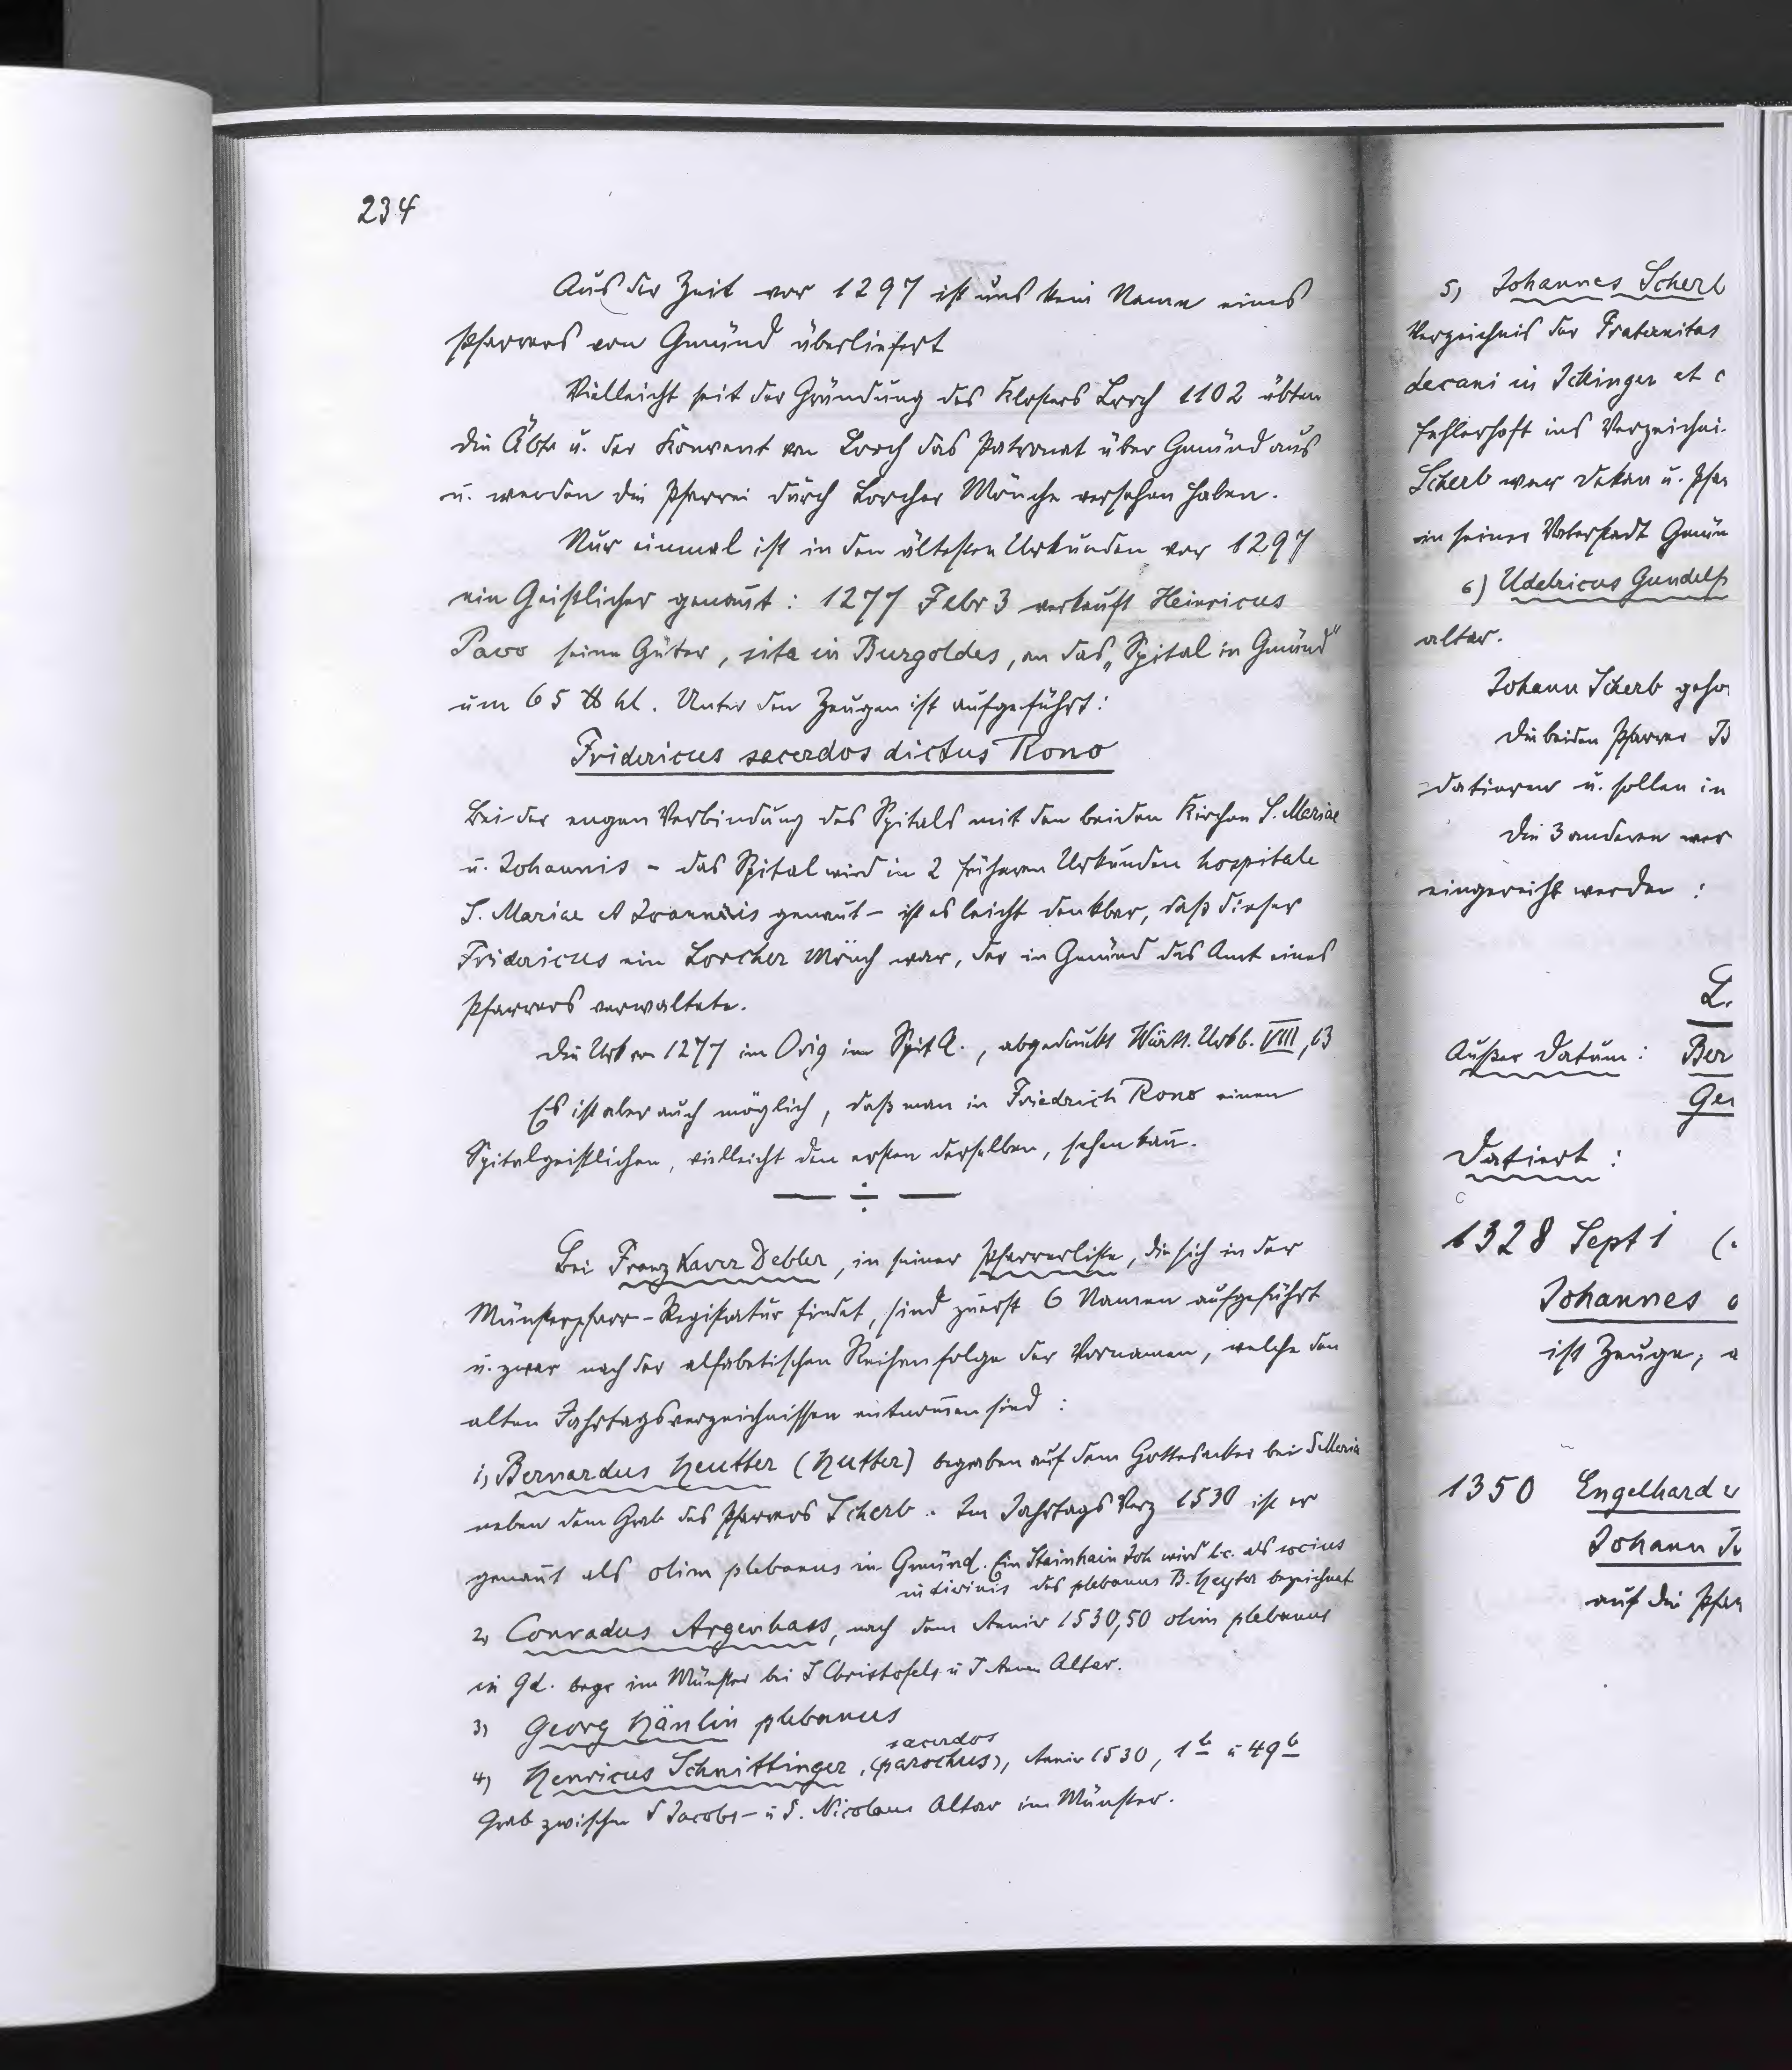 234
Aus der Zeit vor 1297 ist uns kein Name eines
Pfarrers von Gmünd überliefert
Vielleicht seit der Gründung des Klosters Lorch 1102 übten
die Äbte u. der Konvent von Lorch das Patronat über Gmünd aus
u. werden die Pfarrei durch Lorcher Mönche versehen haben.
Nur einmal ist in den ältesten Urkunden vor 1297
ein Geistlicher genannt: 1277 Febr 3 verkauft Heinricus
Pavo seine Güter, sita in Burgoldes, an das „Spital in Gmünd“
um 65 ℔ hl. Unter den Zeugen ist aufgeführt:
Fridericus sacerdos dictus Rono
Bei der engen Verbindung des Spitals mit den beiden Kirchen S. Mariae
u. Johannis – das Spital wird in 2 früheren Urkunden hospitale
S. Mariae et Joannis genannt – ist es leicht denkbar, daß dieser
Fridericus ein Lorcher Mönch war, der in Gmünd das Amt eines
Pfarrers verwaltete.
Die Urk von 1277 im Orig im SpitA., abgedruckt Württ. Urkb. VIII, 13
Es ist aber auch möglich, daß man in Friedrich Rono einen
Spitalgeistlichen, vielleicht den ersten derselben, sehen kann.
— ÷ —
Bei Franz Xaver Debler, in seiner Pfarrerliste, die sich in der
Münsterpfarr-Registratur findet, sind zuerst 6 Namen aufgeführt
u. zwar nach der alfabetischen Reihenfolge der Vornamen, welche den
alten Jahrtagsverzeichnissen entnommen sind:
1) Bernardus Heutter (Hutter) begraben auf dem Gottesacker bei S Maria
neben dem Grab des Pfarrers Scherb. Im Jahrtags Verz 1530 ist er
genannt als olim plebanus in Gmünd. Ein Stainhain Joh wird l.c. als socius
in divinis des plebanus B. Heyter bezeichnet
2) Conradus Argenhass, nach dem Anniv 1530,50 olim plebanus
in Gd. begr im Münster bei S Christofels u S Annen Altar.
3) Georg Hänlin plebanus
4) Henricus Schnittinger, sacerdos (parochus), Anniv 1530, 1b u 49b
Grab zwischen S Jacobs- u S. Nicolaus Altar im Münster.
5) Johannes Scherb
Verzeichnis der Fraternitas
decani in Ickinger et c
fehlerhaft ins Verzeichni
Scherb war Dekan u. Pfar
in seiner Vaterstadt Gmün
6) Udelricus Gundelf
altar.
Johann Scherb geho
Die beiden Pfarrer B
datieren u. sollen in
Die 3 anderen wer
eingereiht werden:
L.
Außer Datum: Ber
Ger
Datiert:
1328 Sept 1 (
Johannes
ist Zeuge;
1350 Engelhard v
Johann
auf die Pfar